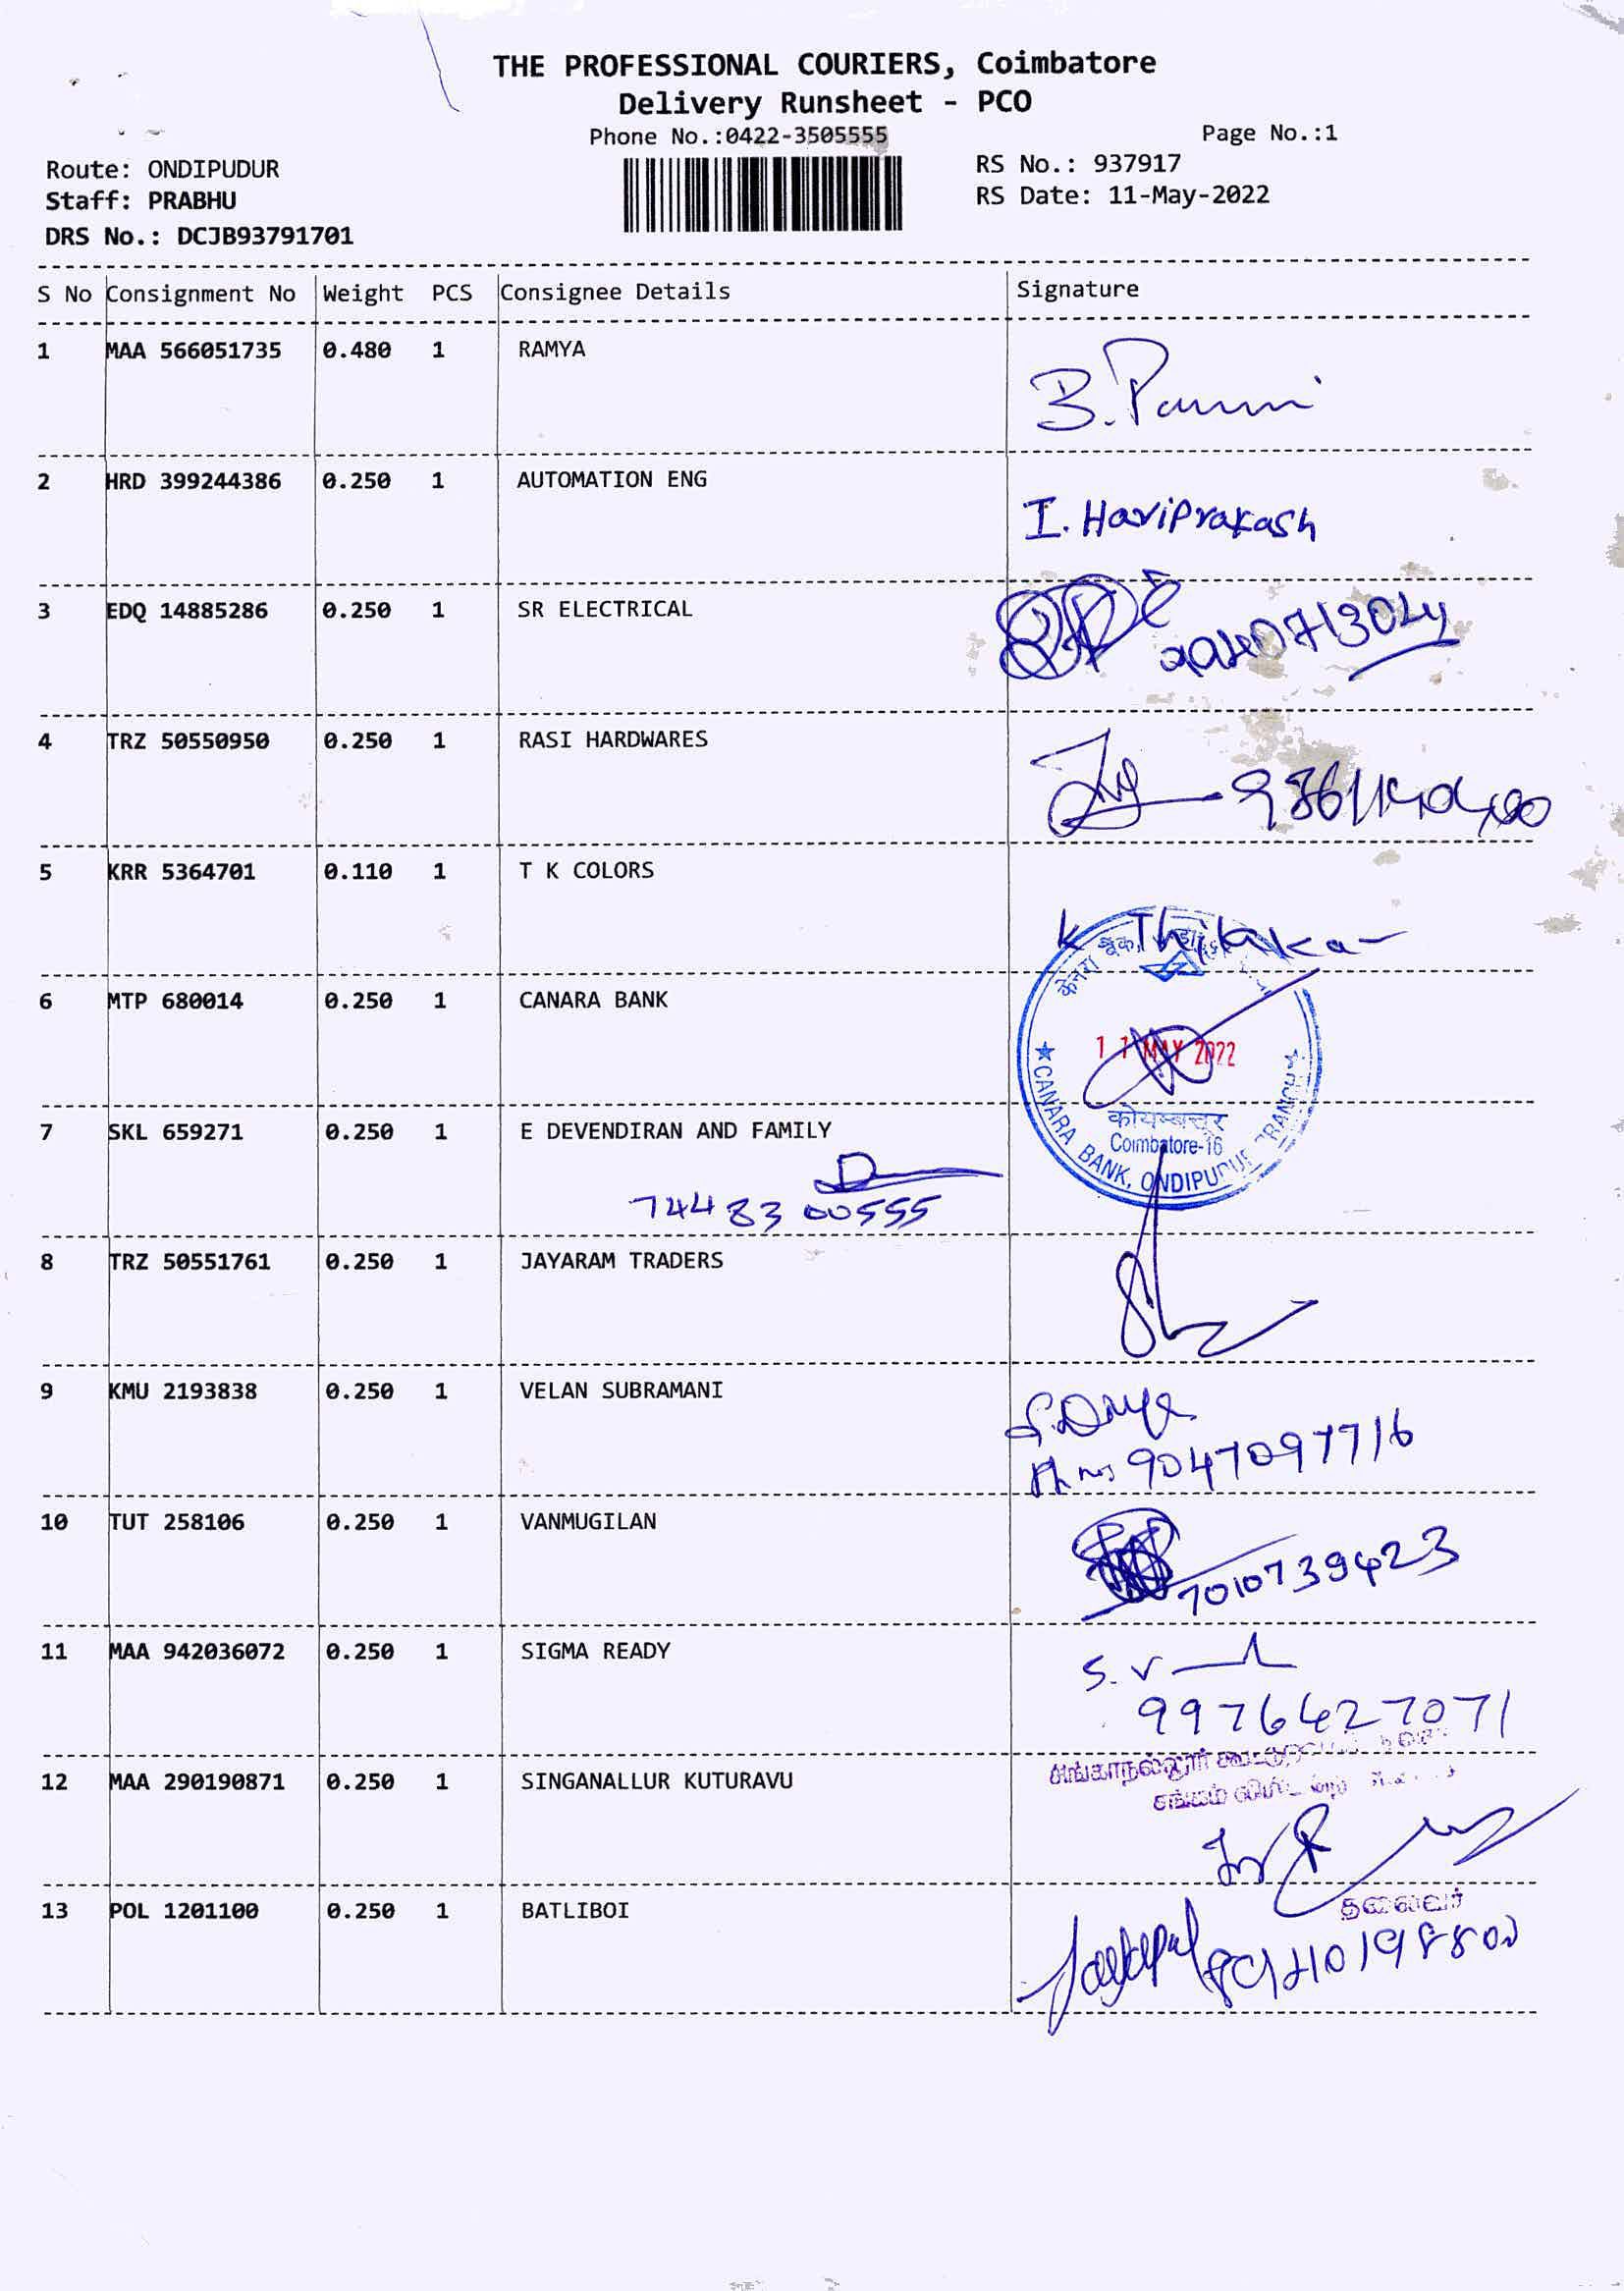 THE PROFESSIONAL COURIERS, Coimbatore
Delivery Runsheet - PCO
Phone No.:0422-3505555
Page No.:1
Route: ONDIPUDUR
RS No.: 937917
Staff: PRABHU
RS Date: 11-May-2022
DRS No.: DCJB93791701
S No Consignment No Weight PCS Consignee Details Signature
1 MAA 566051735 0.480 1 RAMYA
B.
2 HRD 399244386 0.250 1 AUTOMATION ENG
I. HariPrakash
3 EDQ 14885286 0.250 1 SR ELECTRICAL
4 TRZ 50550950 0.250 1 RASI HARDWARES
5 KRR 5364701 0.110 1 T K COLORS
K Thilaka
केनरा बैंक,
6 MTP 680014 0.250 1 CANARA BANK
11 MAY 2022
कोयम्बत्तूर
Coimbatore-16
CANARA BANK, ONDIPUDUR BRANCH
7 SKL 659271 0.250 1 E DEVENDIRAN AND FAMILY
74483 00555
8 TRZ 50551761 0.250 1 JAYARAM TRADERS
9 KMU 2193838 0.250 1 VELAN SUBRAMANI
Ph no 9047097716
10 TUT 258106 0.250 1 VANMUGILAN
7010739423
11 MAA 942036072 0.250 1 SIGMA READY
S.V
9976427071
12 MAA 290190871 0.250 1 SINGANALLUR KUTURAVU
சிங்காநல்லூர்
சங்கம்
தலைவர்
13 POL 1201100 0.250 1 BATLIBOI